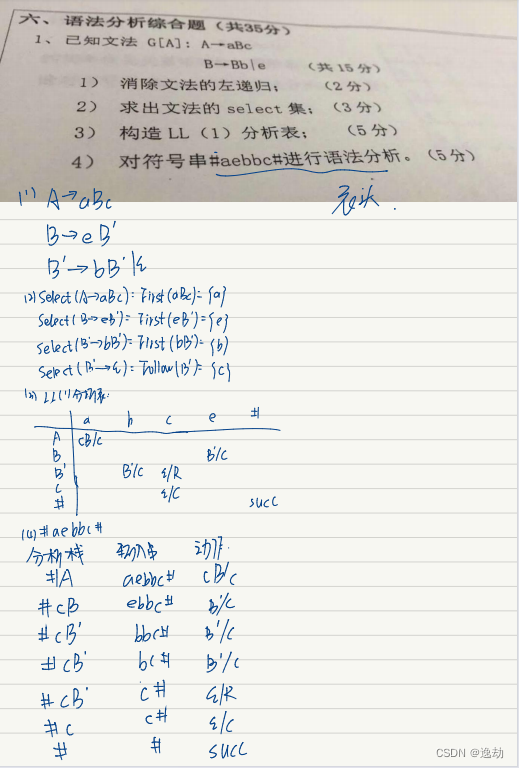 六、语法分析综合题（共35分）
1、已知文法 G[A]: A→aBc
B→Bb|e （共 15 分）
1） 消除文法的左递归； （2 分）
2） 求出文法的 select 集；（3 分）
3） 构造 LL（1）分析表； （5 分）
4） 对符号串#aebbc#进行语法分析。（5 分）
(1) A→aBc
B→eB'
B'→bB'|ε
(2) Select(A→aBc)=First(aBc)={a}
Select(B→eB')=First(eB')={e}
Select(B'→bB')=First(bB')={b}
Select(B'→ε)=Follow(B')={c}
(3) LL(1)分析表
a b c e #
A cB/c
B B'/c
B' B'/c ε/R
C ε/C
# succ
(4) #aebbc#
分析栈 输入串 动作
#A aebbc# cB/c
#cB ebbc# B'/c
#cB' bbc# B'/c
#cB' bc# B'/c
#cB' c# ε/R
#c c# ε/C
# # succ
CSDN @逸劫